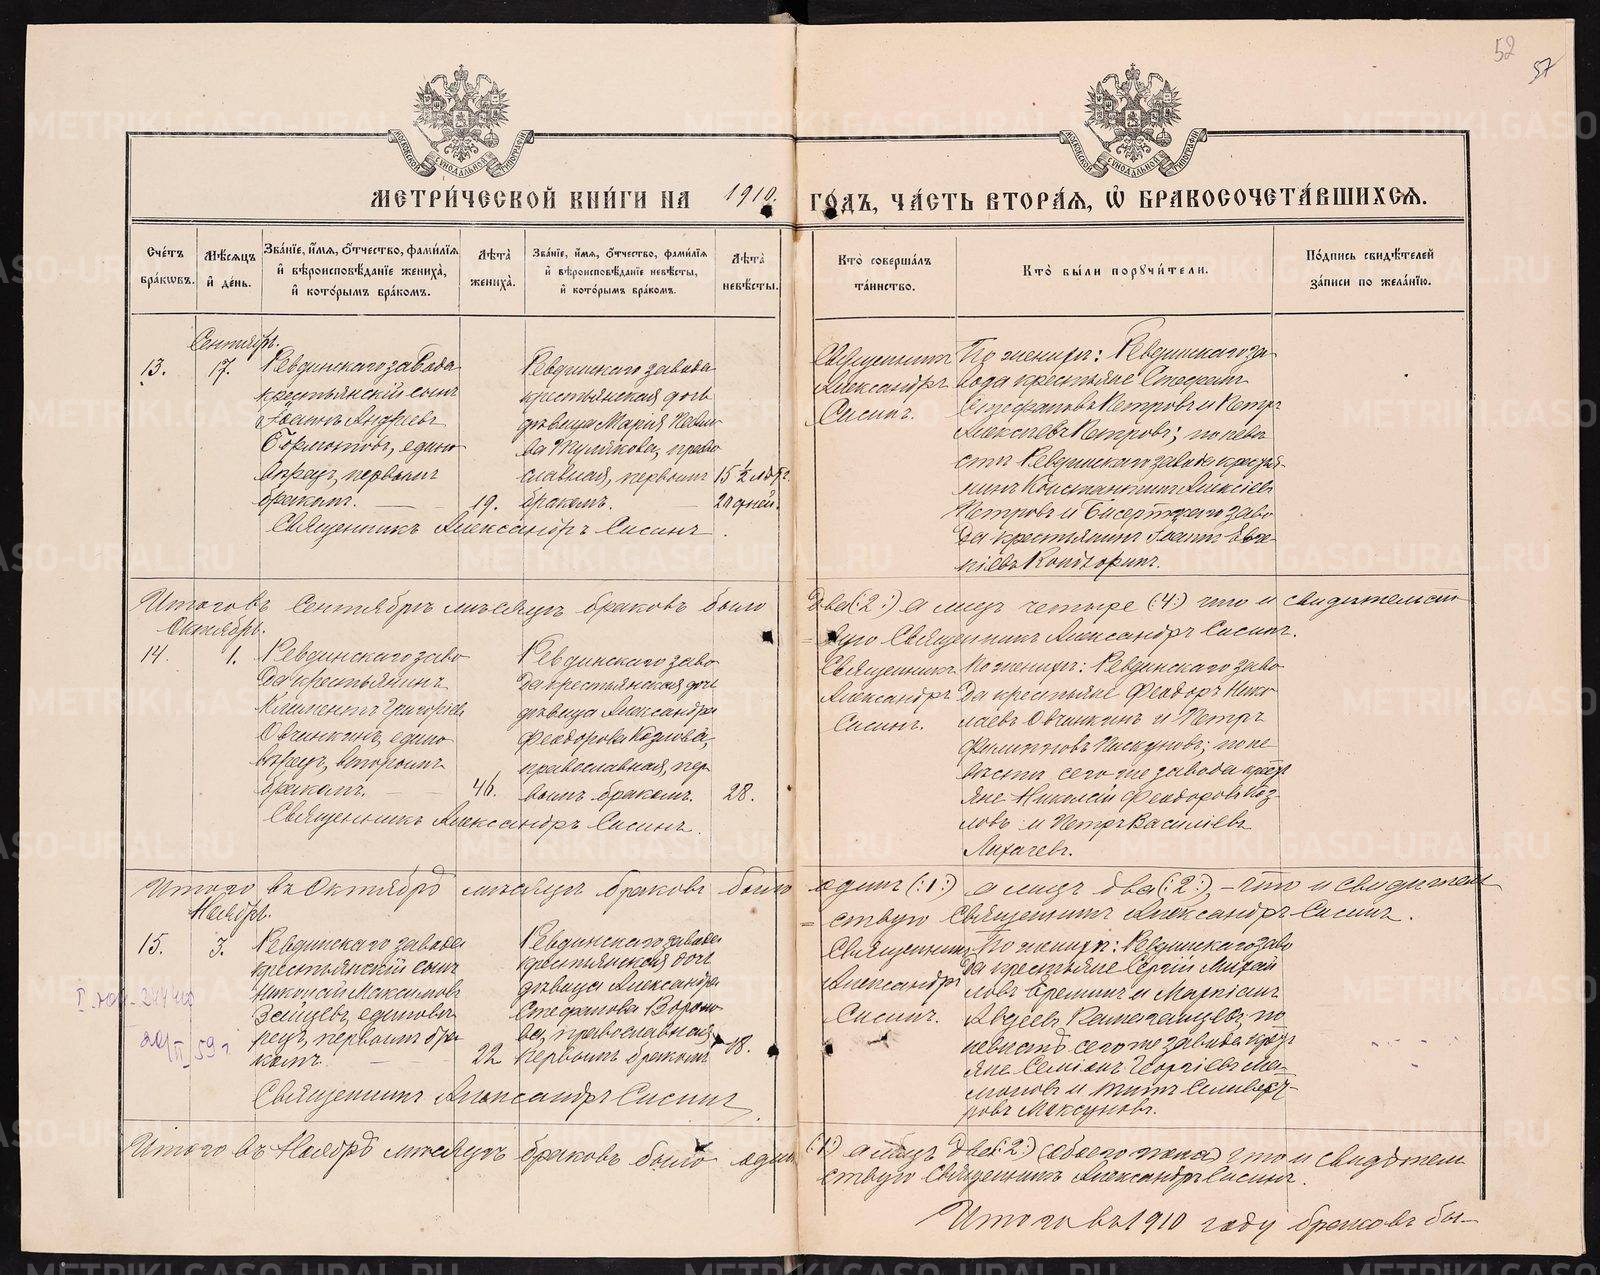 52
57
МОСКОВСКОЙ СУНОДАЛЬНОЙ ТИПОГРАФІИ
МОСКОВСКОЙ СУНОДАЛЬНОЙ ТИПОГРАФІИ
МЕТРИ́ЧЕСКОЙ КНИ́ГИ НА 1910. ГО́ДЪ, ЧА́СТЬ ВТОРА́Ѧ, Ѡ҆ БРАКОСОЧЕТА́ВШИХСѦ.
Сче́тъ бра́кѡвъ.
Мѣ́сѧцъ и҆ де́нь.
Зва́нїе, и҆́мѧ, ѻ҆́тчество, фами́лїѧ и҆ вѣроисповѣ́данїе жениха̀, и҆ кото́рымъ бра́комъ.
Лѣ́та̀ жениха̀.
Зва́нїе, и҆́мѧ, ѻ҆́тчество, фами́лїѧ и҆ вѣроисповѣ́данїе невѣ́сты, и҆ кото́рымъ бра́комъ.
Лѣ́та̀ невѣ́сты.
Кто̀ соверша́лъ та́инство.
Кто̀ бы́ли порꙋчи́тели.
По́дпись свидѣ́телей за́писи по жела́нїю.
Сентябрь.
13.
17.
Ревдинскаго завода
крестьянскій сынъ
Іоаннъ Андреевъ
едино
вѣрецъ, первымъ
бракомъ.
19.
Ревдинскаго завода
крестьянская дочь
дѣвица Марія Павло
ва православная, первымъ
бракомъ.
15 1/2 лѣт
дней.
Священникъ Александръ Сисинъ
Священникъ
Александръ
Сисинъ.
По женихѣ: Ревдинскаго за
вода крестьяне Стефанъ
Стефановъ Петровъ и Петръ
Алексѣевъ Петровъ; по невѣ
стѣ Ревдинскаго завода крестья
нинъ Константинъ Алексѣевъ
Петровъ и Бисертскаго заво
да крестьянинъ Іоаннъ Евге
ніевъ
Итого въ Сентябрѣ мѣсяцѣ браковъ было два (:2:) а лицъ четыре (:4:) что и свидѣтельст
вую Священникъ Александръ Сисинъ.
Октябрь.
14.
1.
Ревдинскаго заво
да крестьянинъ
Климентъ Григорьевъ
Овчинкинъ, едино
вѣрецъ, вторымъ
бракомъ.
46.
Ревдинскаго заво
да крестьянская дочь
дѣвица Александра
Феодорова Козлова,
православная, пер
вымъ бракомъ.
28.
Священникъ Александръ Сисинъ.
Священникъ
Александръ
Сисинъ.
По женихѣ: Ревдинскаго заво
да крестьяне Феодоръ Нико
лаевъ Овчинкинъ и Петръ
Филипповъ Пискуновъ; по не
вѣстѣ сего же завода кресть
яне Николай Феодоровъ Коз-
ловъ и Петръ Василіевъ
Лихачевъ.
Итого въ Октябрѣ мѣсяцѣ браковъ было одинъ (:1:) а лицъ два (:2:), – что и свидѣтель
ствую Священникъ Александръ Сисинъ.
Ноябрь.
15.
3.
Ревдинскаго завода
крестьянскій сынъ
Николай Максимовъ
Зайцевъ, единовѣ
рецъ, первымъ бра
комъ.
22
Ревдинскаго завода
крестьянская дочь
дѣвица Александра
Стефанова Вороно
ва, православная,
первымъ бракомъ
18.
59 г.
Священникъ Александръ Сисинъ
Священникъ
Александръ
Сисинъ.
По женихѣ: Ревдинскаго заво
да крестьяне Сергій Михай
ловъ Ереминъ и Маркіанъ
Авдеевъ по
невѣстѣ сего же завода кресть
яне Семіонъ Георгіевъ Ма
моновъ и Титъ Сильвест
ровъ
Итого въ Ноябрѣ мѣсяцѣ браковъ было одинъ (:1:) а лицъ два (:2:) (обоего пола) что и свидѣтель
ствую Священникъ Александръ Сисинъ.
Итого въ 1910 году браковъ бы-
METRIKI.GASO-URAL.RU